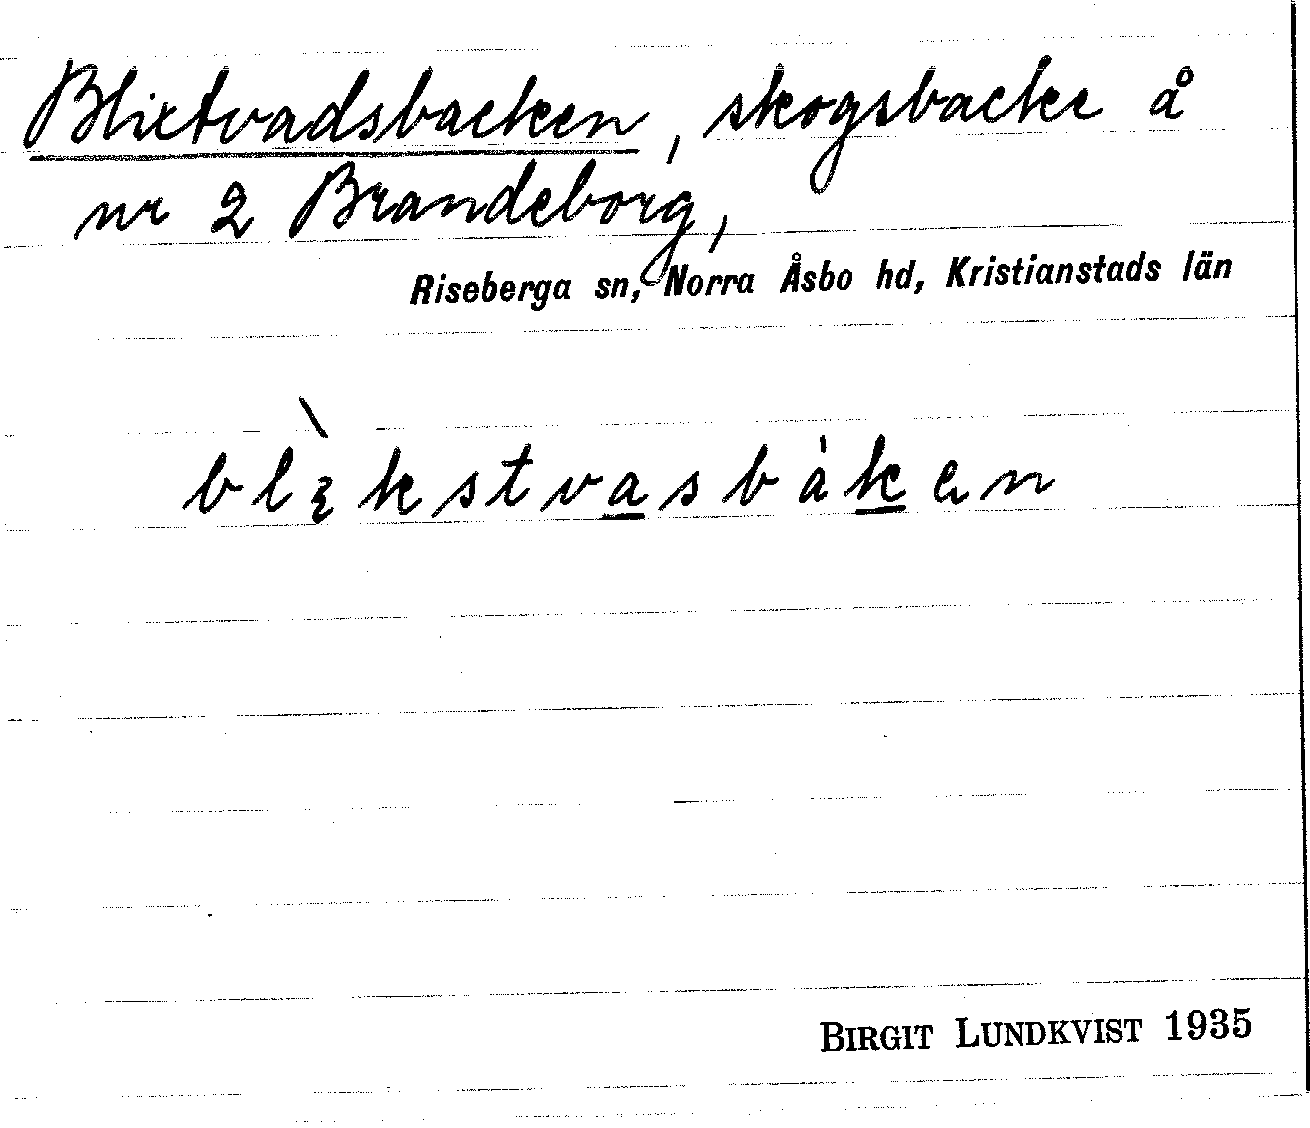 Blixtvadsbacken, skogsbacke å
nr 2 Brandeborg,
Riseberga sn, Norra Åsbo hd, Kristianstads län
blɛ̀kstvasbákən
BIRGIT LUNDKVIST 1935